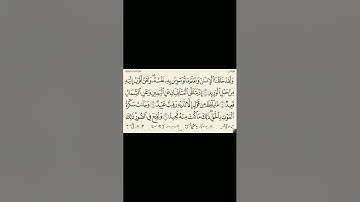 وَلَقَدْ خَلَقْنَا ٱلْإِنسَٰنَ وَنَعْلَمُ مَا تُوَسْوِسُ بِهِۦ نَفْسُهُۥ ۖ وَنَحْنُ أَقْرَبُ إِلَيْهِ
مِنْ حَبْلِ ٱلْوَرِيدِ ۝ إِذْ يَتَلَقَّى ٱلْمُتَلَقِّيَانِ عَنِ ٱلْيَمِينِ وَعَنِ ٱلشِّمَالِ
قَعِيدٌ ۝ مَّا يَلْفِظُ مِن قَوْلٍ إِلَّا لَدَيْهِ رَقِيبٌ عَتِيدٌ ۝ وَجَآءَتْ سَكْرَةُ
ٱلْمَوْتِ بِٱلْحَقِّ ۖ ذَٰلِكَ مَا كُنتَ مِنْهُ تَحِيدُ ۝ وَنُفِخَ فِى ٱلصُّورِ ۚ ذَٰلِكَ